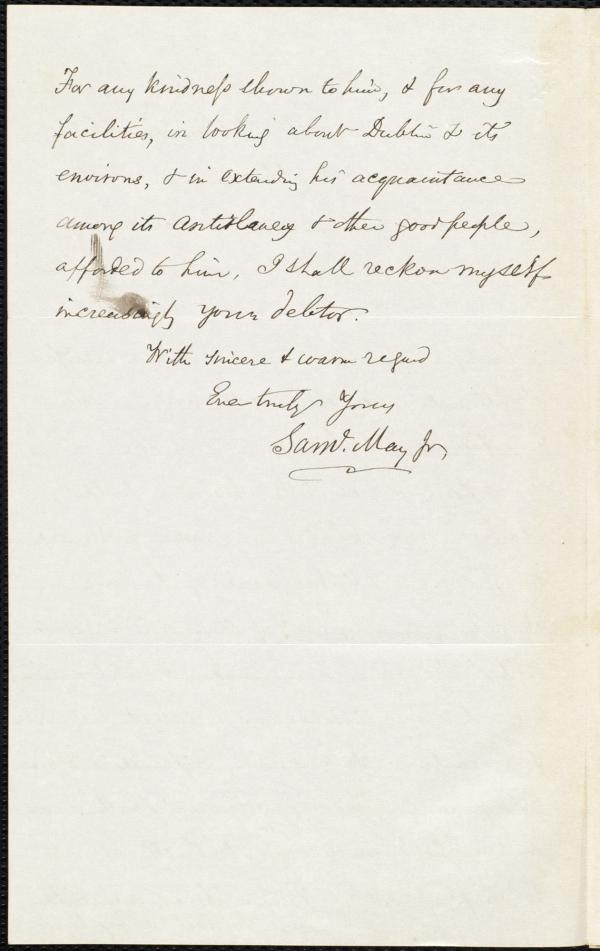 For any kindness shown to him, & for any
facilities, in looking about Dublin & its
environs, & in extending his acquaintance
among its antislavery & other good people,
afforded to him, I shall reckon myself
increasingly your debtor.
With sincere & warm regard
Ever truly Yours
Saml. May Jr.